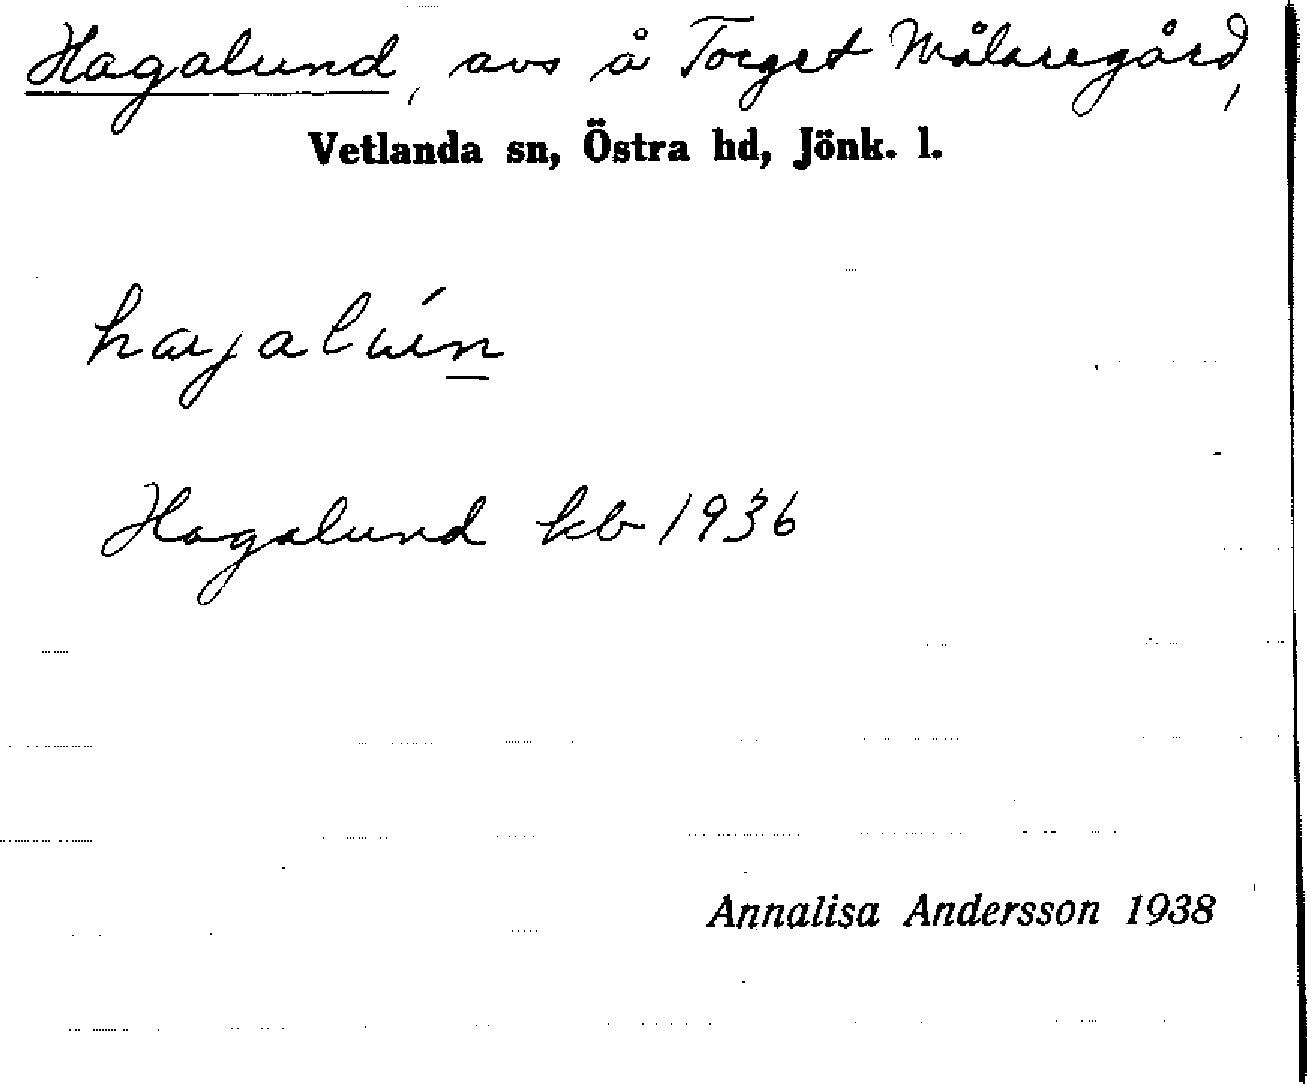 Hagalund, avs å Torget Målaregård,
Vetlanda sn, Östra hd, Jönk. l.
Hagalund kb 1936
Annalisa Andersson 1938